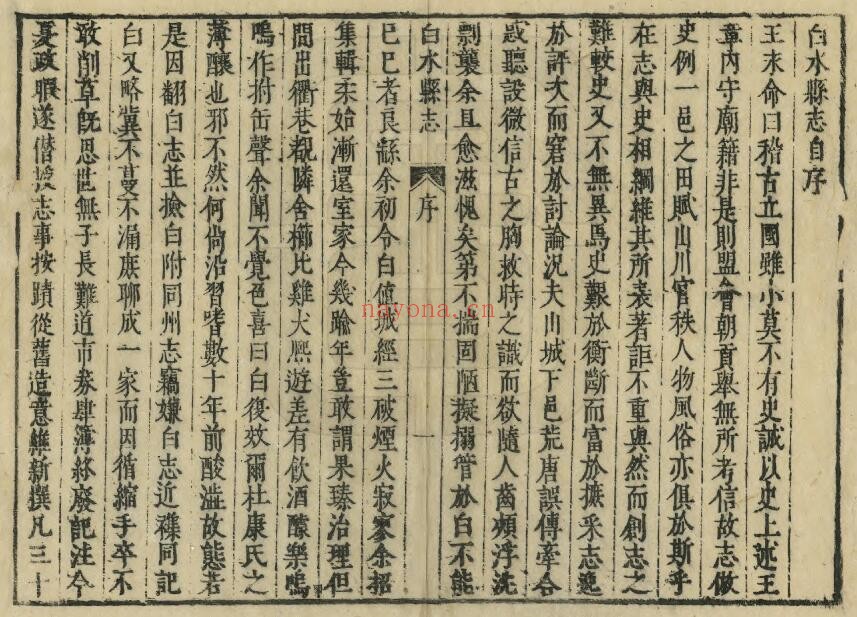 白水縣志自序
王末命曰稽古立國雖小莫不有史誠以史上述王
章內守廟籍非是則盟會朝貢舉無所考信故志倣
史例一邑之田賦山川官秩人物風俗亦俱於斯乎
在志與史相綱維其所表著詎不重與然而創志之
難較史又不無異焉史艱於衡斷而富於摭采志逸
於評次而窘於討論況夫山城下邑荒唐誤傳牽合
惑聽設微信古之胸救時之識而欲隨人齒頰浮沈
剽襲余且愈滋愧矣第不揣固陋擬搦管於白不能
白水縣志 序 一
已巳者良繇余初令白値城經三破煙火寂寥余招
集輯柔始漸還室家今幾踰年豈敢謂果臻治理但
間出衢巷覩隣舍櫛比雞犬熙遊差有飲酒醵樂嗚
嗚作拊缶聲余聞不覺色喜曰白復效爾杜康氏之
薄釀也邪不然何尚沿習嗜數十年前酸澁故態若
是因翻白志並撿白附同州志竊嫌白志近襍同記
白又略冀不蔓不漏庶聊成一家而因循縮手卒不
敢削草旣思世無子長難道市券肆簿終廢記注今
夏政暇遂僭授志事按蹟從舊造意維新撰凡三十
nayona.cn